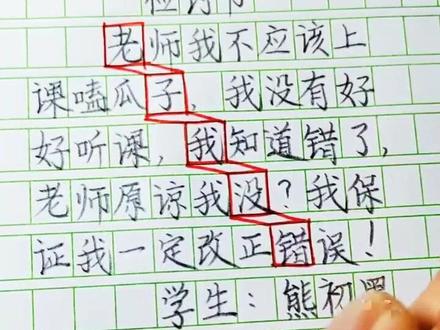 老师我不应该上
课嗑瓜子，我没有好
好听课，我知道错了，
老师原谅我没？我保
证我一定改正错误！
学生：熊初墨